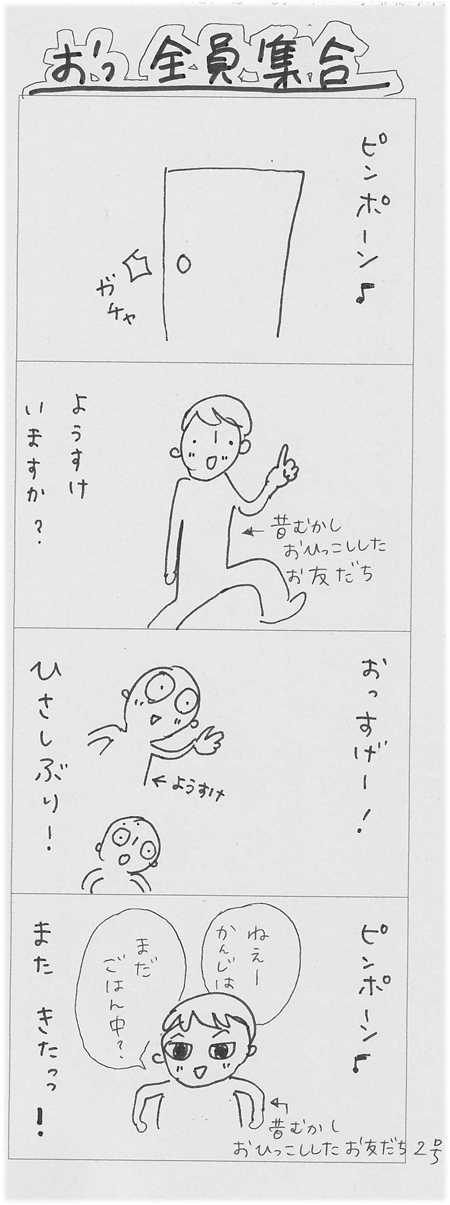 おっ全員集合
ピンポーン♪
ガチャ
ようすけ
いますか？
←昔むかし
おひっこしした
お友だち
おっすげー！
ひさしぶりー！
←ようすけ
ピンポーン♪
ねぇー
かんじは
まだ
ごはん中？
また きたっっ！
昔むかし
おひっこしした お友だち2号